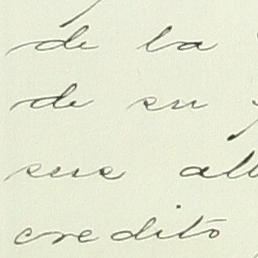 de la
de su
sus
credito